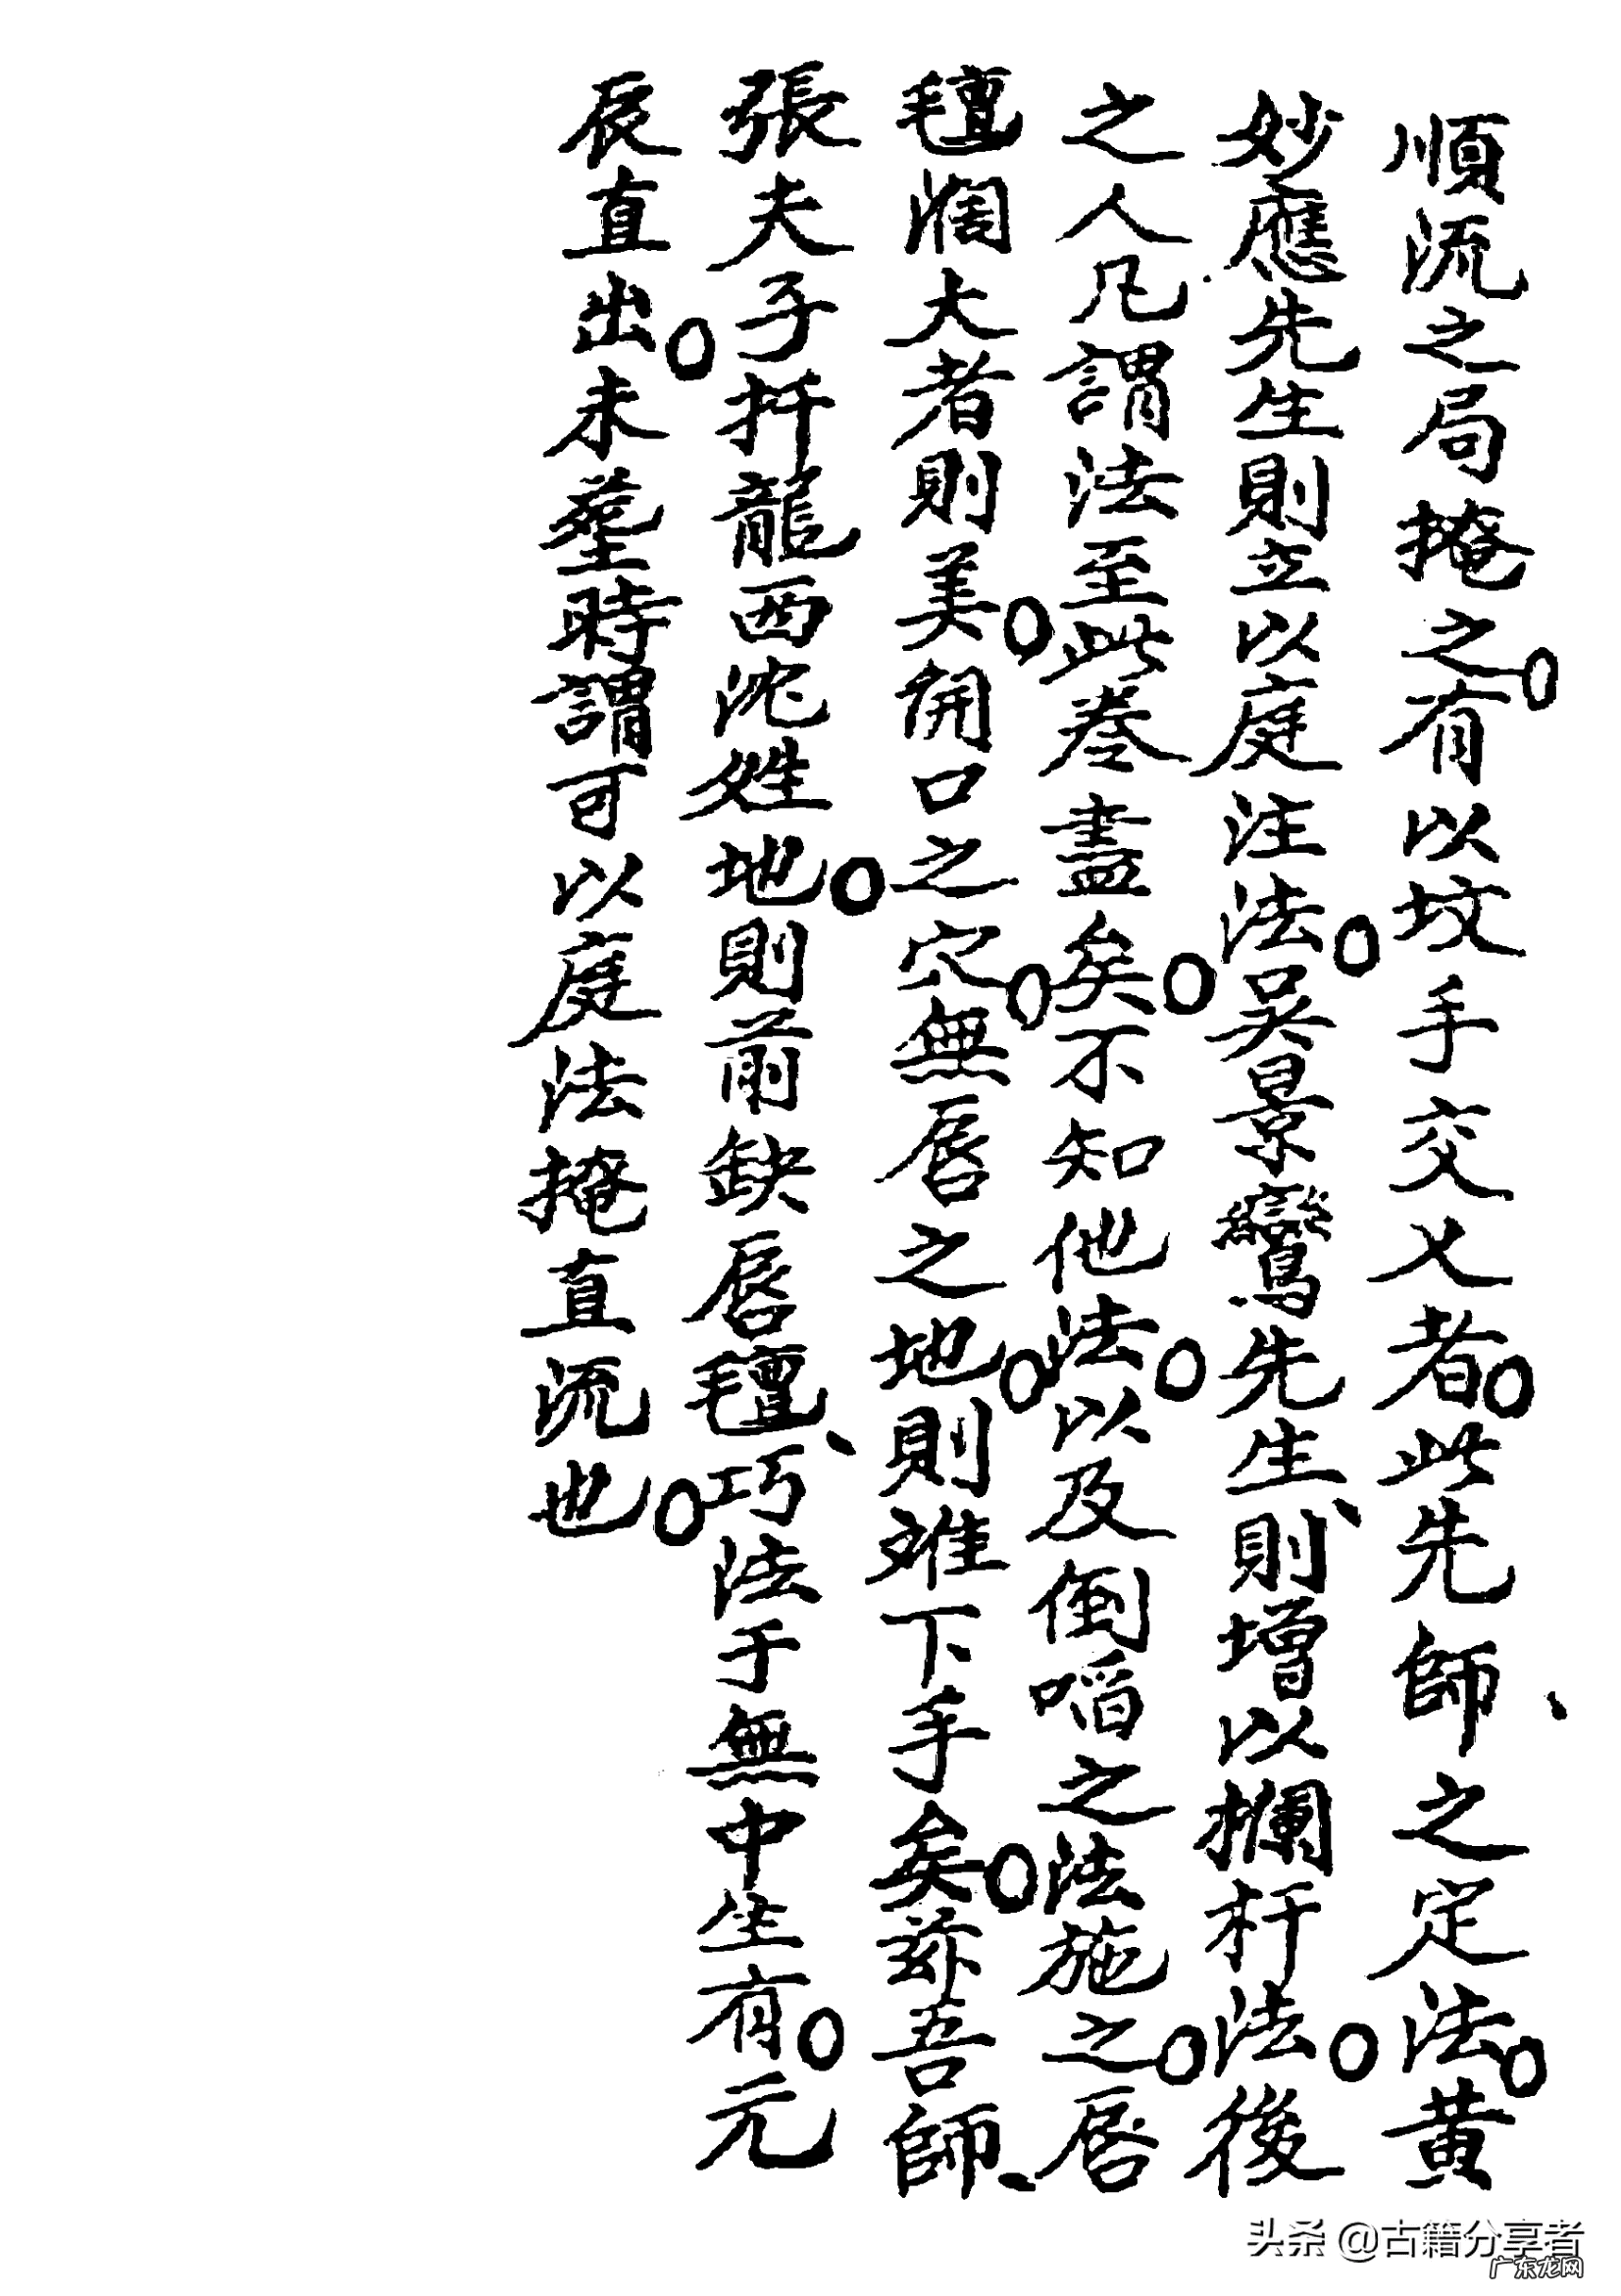 順流之局掩之。有以坟手交乂者。此先師、之定法。黄
妙應先生則立以庭注法。吴景鸞先生、則增以攔杆法。後
之人凡謂法至此卷盡矣。不知他法。以及倒㗖之法施之。唇
氊濶大者則美。開口之穴。無唇之地。則难下手矣。兹吾師、
張夫子扦龍西沈姓地。則前缺唇氊、巧法于無中生有。元
辰直出。未塟時謂可以庭法掩直流也。
头条 @古籍分享者
广东龙网